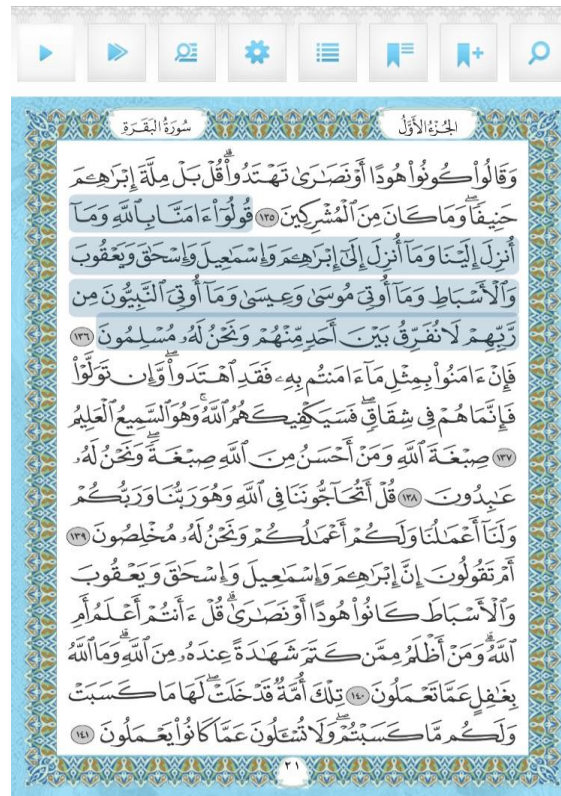 سُورَةُ البَقَرَةِ
الجُزْءُ الأَوَّلُ
وَقَالُوا۟ كُونُوا۟ هُودًا أَوْ نَصَـٰرَىٰ تَهْتَدُوا۟ ۗ قُلْ بَلْ مِلَّةَ إِبْرَٰهِـۧمَ
حَنِيفًا ۖ وَمَا كَانَ مِنَ ٱلْمُشْرِكِينَ ١٣٥ قُولُوٓا۟ ءَامَنَّا بِٱللَّهِ وَمَآ
أُنزِلَ إِلَيْنَا وَمَآ أُنزِلَ إِلَىٰٓ إِبْرَٰهِـۧمَ وَإِسْمَـٰعِيلَ وَإِسْحَـٰقَ وَيَعْقُوبَ
وَٱلْأَسْبَاطِ وَمَآ أُوتِىَ مُوسَىٰ وَعِيسَىٰ وَمَآ أُوتِىَ ٱلنَّبِيُّونَ مِن
رَّبِّهِمْ لَا نُفَرِّقُ بَيْنَ أَحَدٍ مِّنْهُمْ وَنَحْنُ لَهُۥ مُسْلِمُونَ ١٣٦
فَإِنْ ءَامَنُوا۟ بِمِثْلِ مَآ ءَامَنتُم بِهِۦ فَقَدِ ٱهْتَدَوا۟ ۖ وَّإِن تَوَلَّوْا۟
فَإِنَّمَا هُمْ فِى شِقَاقٍ ۖ فَسَيَكْفِيكَهُمُ ٱللَّهُ ۚ وَهُوَ ٱلسَّمِيعُ ٱلْعَلِيمُ
١٣٧ صِبْغَةَ ٱللَّهِ ۖ وَمَنْ أَحْسَنُ مِنَ ٱللَّهِ صِبْغَةً ۖ وَنَحْنُ لَهُۥ
عَـٰبِدُونَ ١٣٨ قُلْ أَتُحَآجُّونَنَا فِى ٱللَّهِ وَهُوَ رَبُّنَا وَرَبُّكُمْ
وَلَنَآ أَعْمَـٰلُنَا وَلَكُمْ أَعْمَـٰلُكُمْ وَنَحْنُ لَهُۥ مُخْلِصُونَ ١٣٩
أَمْ تَقُولُونَ إِنَّ إِبْرَٰهِـۧمَ وَإِسْمَـٰعِيلَ وَإِسْحَـٰقَ وَيَعْقُوبَ
وَٱلْأَسْبَاطَ كَانُوا۟ هُودًا أَوْ نَصَـٰرَىٰ ۗ قُلْ ءَأَنتُمْ أَعْلَمُ أَمِ
ٱللَّهُ ۗ وَمَنْ أَظْلَمُ مِمَّن كَتَمَ شَهَـٰدَةً عِندَهُۥ مِنَ ٱللَّهِ ۗ وَمَا ٱللَّهُ
بِغَـٰفِلٍ عَمَّا تَعْمَلُونَ ١٤٠ تِلْكَ أُمَّةٌ قَدْ خَلَتْ ۖ لَهَا مَا كَسَبَتْ
وَلَكُم مَّا كَسَبْتُمْ ۖ وَلَا تُسْـَٔلُونَ عَمَّا كَانُوا۟ يَعْمَلُونَ ١٤١
٢١